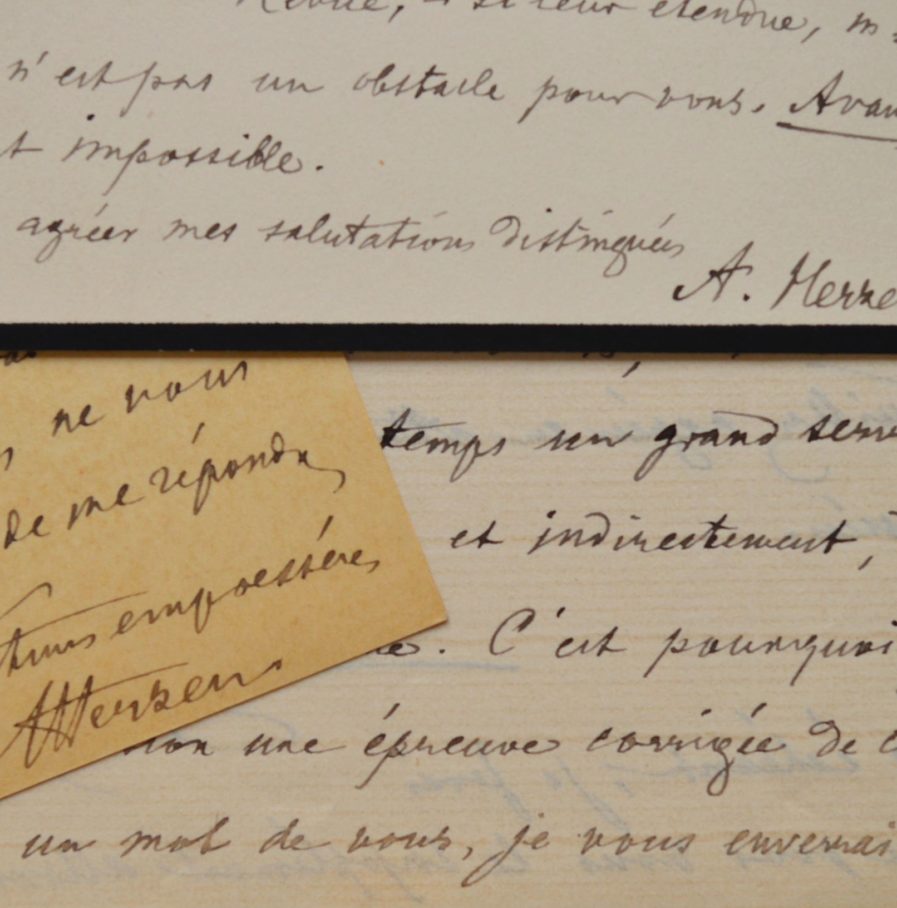 si leur étendue,
n'est pas un obstacle pour vous. Avan
t impossible.
agréer mes salutations distinguées
A. Herze
ne vous
de me répondre
empressées
AHerzen
temps un grand serv
et indirectement,
. C'est pourquoi
une épreuve corrigée de
un mot de vous, je vous enverrai